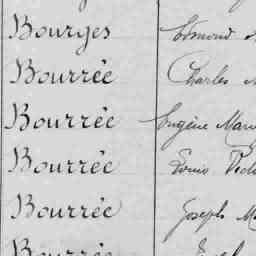 Bourges Edmond
Bourrée Charles
Bourrée Eugène
Bourrée Louis
Bourrée Joseph
Bourrée